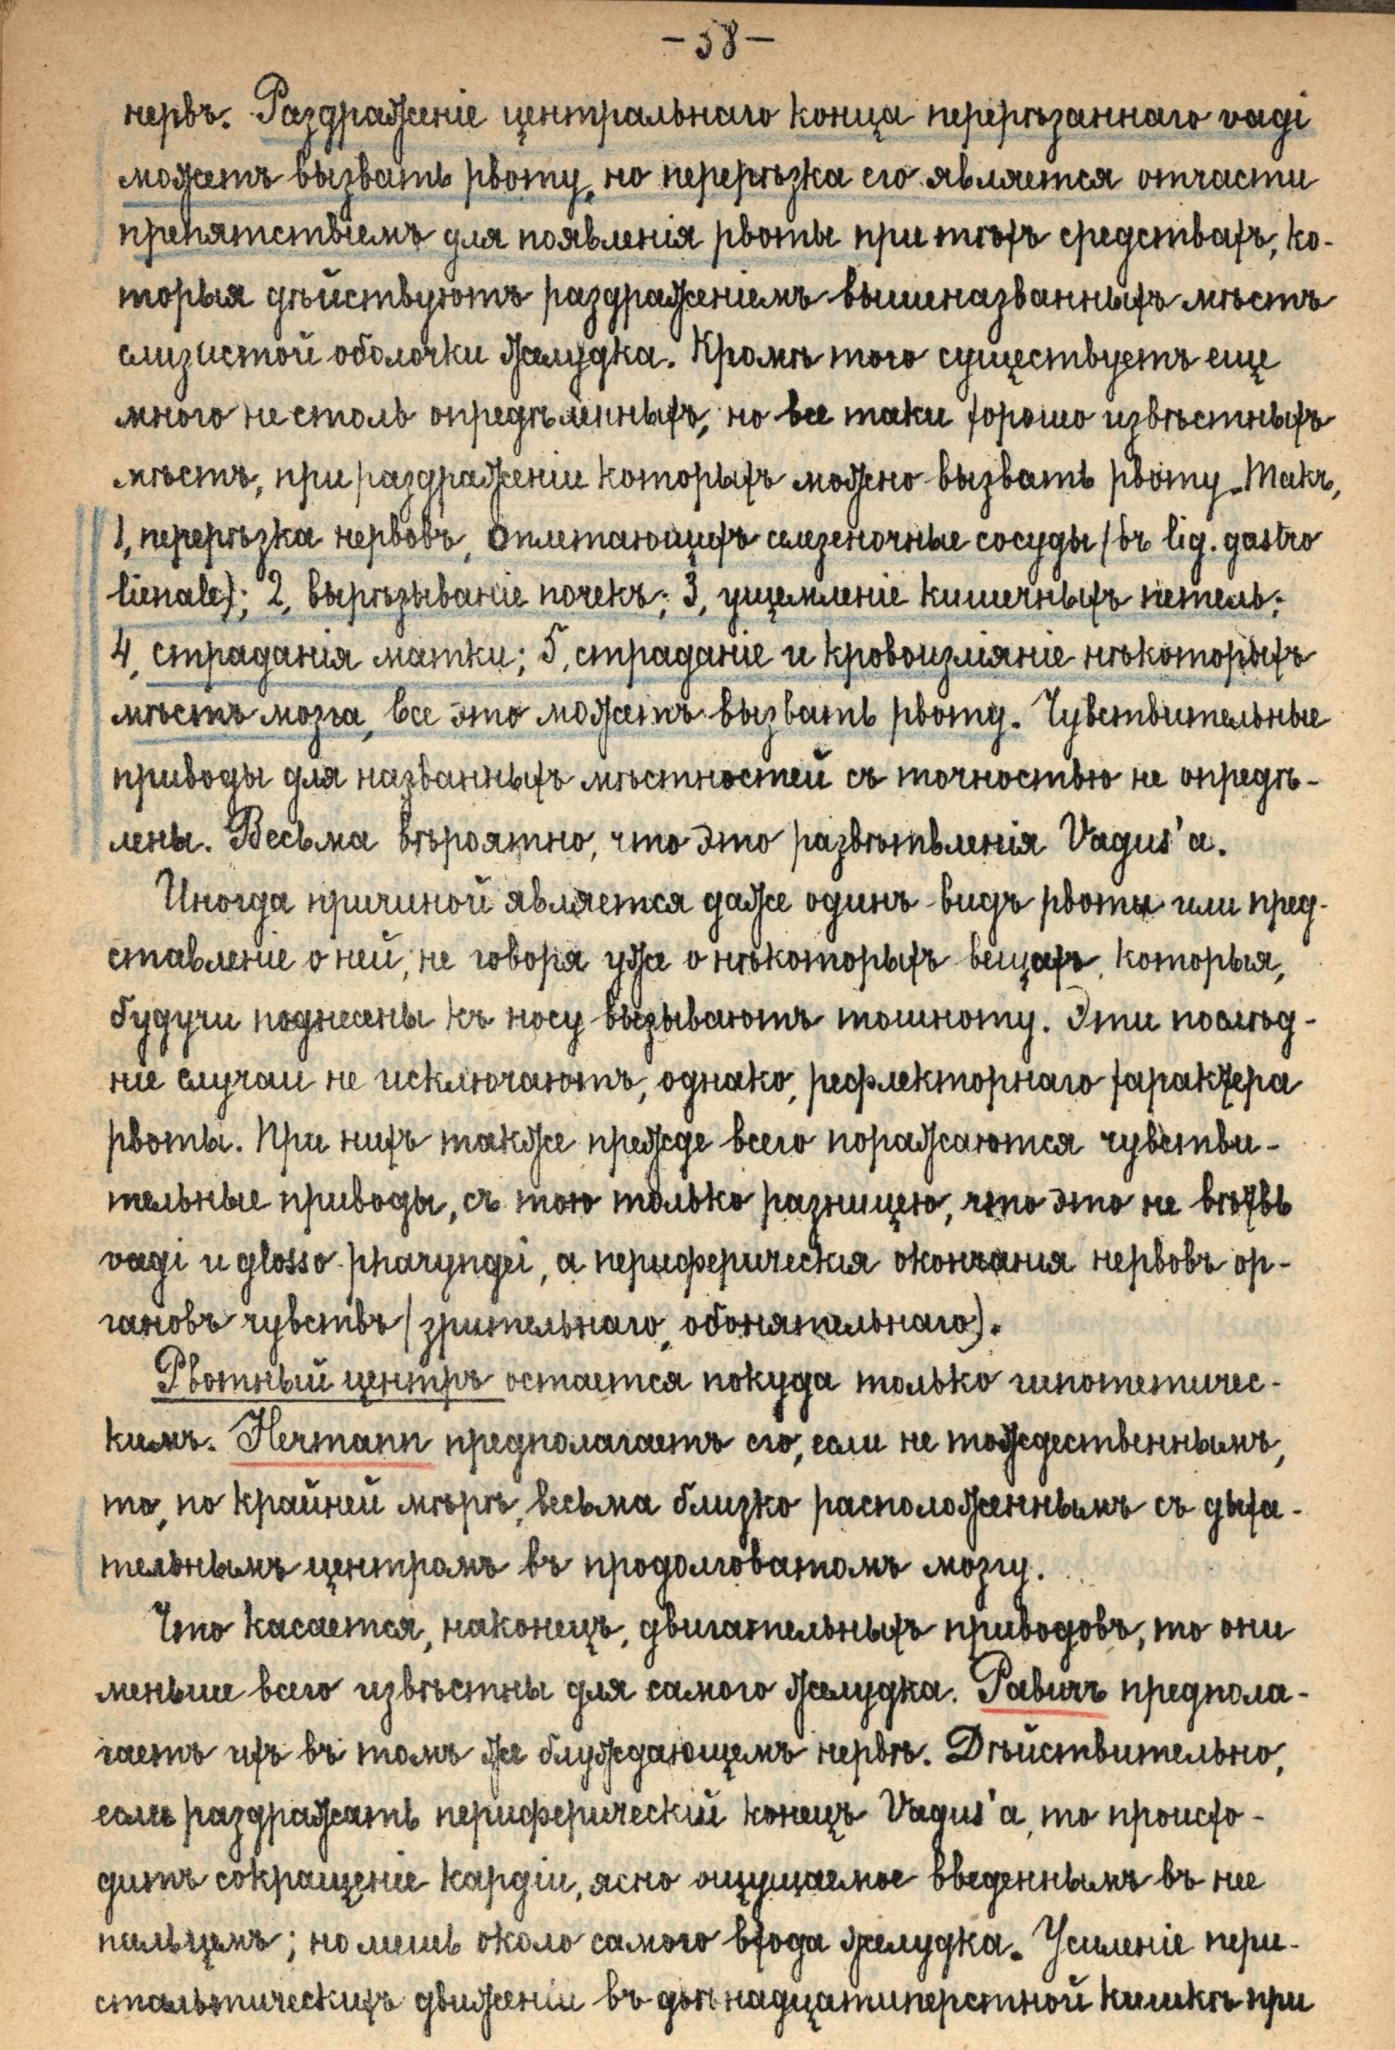 -38-
нервъ. Раздраженіе центральнаго конца перерѣзаннаго vagi
можетъ вызвать рвоту, но перерѣзка его является отчасти
препятствіемъ для появленія рвоты при тѣхъ средствахъ, ко-
торыя дѣйствуютъ раздраженіемъ вышеназванныхъ мѣстъ
слизистой оболочки желудка. Кромѣ того существуетъ еще
много не столь опредѣленныхъ, но все таки хорошо извѣстныхъ
мѣстъ, при раздраженіи которыхъ можно вызвать рвоту. Такъ,
1, перерѣзка нервовъ, оплетающихъ селезеночные сосуды (въ lig. gastro
lienale); 2, вырѣзываніе почекъ; 3, ущемленіе кишечныхъ петель;
4, страданія матки; 5, страданіе и кровоизліяніе нѣкоторыхъ
мѣстъ мозга, все это можетъ вызвать рвоту. Чувствительные
приводы для названныхъ мѣстностей съ точностью не опредѣ-
лены. Весьма вѣроятно, что это развѣтвленія Vagus'a.
Иногда причиной является даже одинъ видъ рвоты или пред-
ставленіе о ней, не говоря уже о нѣкоторыхъ вещахъ, которыя,
будучи поднесены къ носу вызываютъ тошноту. Эти послѣд-
ніе случаи не исключаютъ, однако, рефлекторнаго характера
рвоты. При нихъ также прежде всего поражаются чувстви-
тельные приводы, съ тою только разницею, что это не вѣтвь
vagi и glosso-pharyngei, а периферическія окончанія нервовъ ор-
гановъ чувствъ (зрительнаго, обонятельнаго).
Рвотный центръ остается покуда только гипотетичес-
кимъ. Hermann предполагаетъ его, если не тождественнымъ,
то, по крайней мѣрѣ, весьма близко расположеннымъ съ дыха-
тельнымъ центромъ въ продолговатомъ мозгу.
Что касается, наконецъ, двигательныхъ приводовъ, то они
меньше всего извѣстны для самого желудка. Равичъ предпола-
гаетъ ихъ въ томъ же блуждающемъ нервѣ. Дѣйствительно,
если раздражать периферическій конецъ Vagus'a, то происхо-
дитъ сокращеніе кардіи, ясно ощущаемое введеннымъ въ нее
пальцемъ; но лишь около самого входа желудка. Усиленіе пери-
стальтическихъ движеніи въ двѣнадцатиперстной кишкѣ при